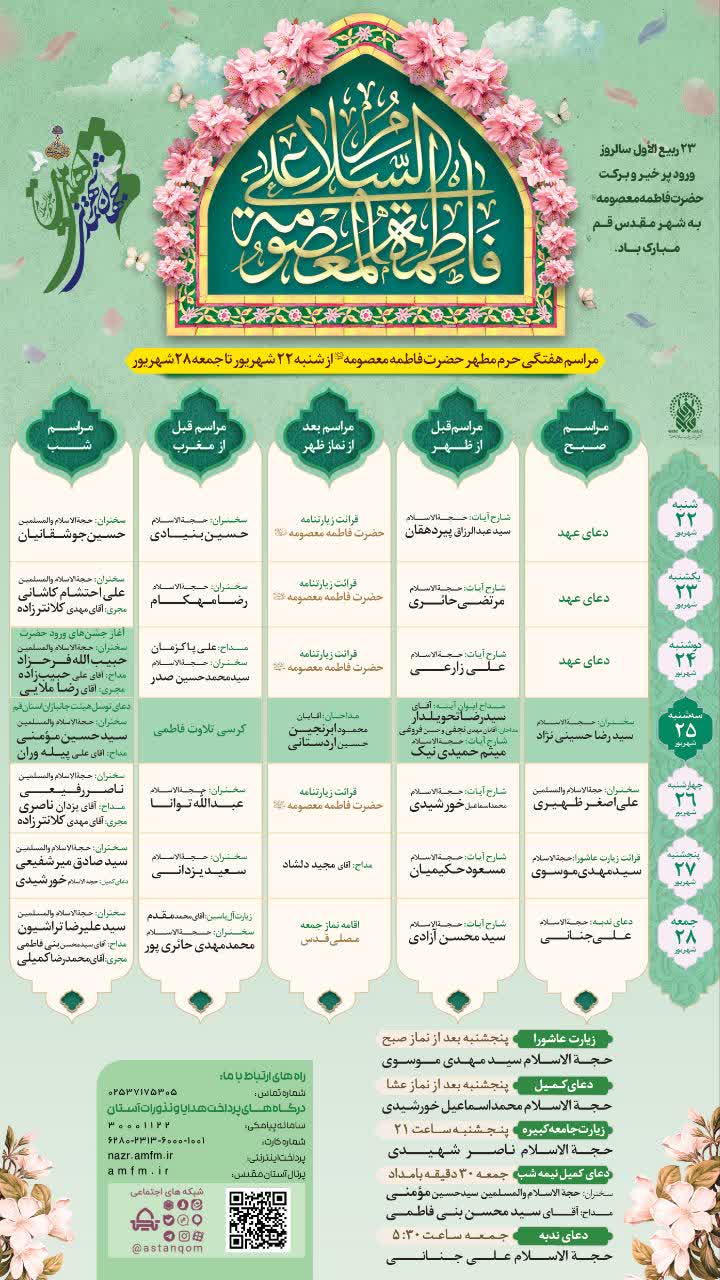 السلام علی
فاطمة المعصومة
۲۳ ربیع الاول سالروز
ورود پر خیر و برکت
حضرت فاطمه معصومه
به شهر مقدس قم
مبارک باد.
مراسم هفتگی حرم مطهر حضرت فاطمه معصومه از شنبه ۲۲ شهریور تا جمعه ۲۸ شهریور
مراسم صبح
مراسم قبل از ظهر
مراسم بعد از نماز ظهر
مراسم قبل از مغرب
مراسم شب
شنبه
۲۲
شهریور
دعای عهد
شارح آیات: حجة الاسلام
سید عبدالرزاق پیردهقان
قرائت زیارتنامه
حضرت فاطمه معصومه
سخنران: حجة الاسلام
حسین بنیادی
سخنران: حجة الاسلام والمسلمین
حسین جوشقانیان
یکشنبه
۲۳
شهریور
دعای عهد
شارح آیات: حجة الاسلام
مرتضی حائری
قرائت زیارتنامه
حضرت فاطمه معصومه
سخنران: حجة الاسلام
رضا مهکام
سخنران: حجة الاسلام والمسلمین
علی احتشام کاشانی
مجری: آقای مهدی کلانتر زاده
دوشنبه
۲۴
شهریور
دعای عهد
شارح آیات: حجة الاسلام
علی زارعی
قرائت زیارتنامه
حضرت فاطمه معصومه
مداح: علی پاکزمان
سخنران: حجة الاسلام
سید محمد حسین صدر
آغاز جشن‌های ورود حضرت
سخنران: حجة الاسلام والمسلمین
حبیب الله فرحزاد
مداح: آقای علی حبیب زاده
مجری: آقای رضا ملایی
سه‌شنبه
۲۵
شهریور
سخنران: حجة الاسلام
سید رضا حسینی نژاد
مداح ایوان آینه: آقای
سید رضا تحویلدار
مداحان: آقایان مهدی نجفی و حسن فروغی
شارح آیات: حجة الاسلام
میثم حمیدی نیک
مداحان: آقایان
محمود ابرنجین
حسین اردستانی
کرسی تلاوت فاطمی
دعای توسل هیئت جانبازان استان قم
سخنران: حجة الاسلام والمسلمین
سید حسین مؤمنی
مداح: آقای علی پیله وران
چهارشنبه
۲۶
شهریور
سخنران: حجة الاسلام والمسلمین
علی اصغر ظهیری
شارح آیات: حجة الاسلام
محمد اسماعیل خورشیدی
قرائت زیارتنامه
حضرت فاطمه معصومه
سخنران: حجة الاسلام
عبدالله توانا
سخنران: حجة الاسلام والمسلمین
ناصر رفیعی
مداح: آقای یزدان ناصری
مجری: آقای مهدی کلانتر زاده
پنجشنبه
۲۷
شهریور
قرائت زیارت عاشورا: حجة الاسلام
سید مهدی موسوی
شارح آیات: حجة الاسلام
مسعود حکیمیان
مداح: آقای مجید دلشاد
سخنران: حجة الاسلام
سعید یزدانی
سخنران: حجة الاسلام والمسلمین
سید صادق میرشفیعی
دعای کمیل: حجة الاسلام خورشیدی
جمعه
۲۸
شهریور
دعای ندبه: حجة الاسلام
علی جنانی
شارح آیات: حجة الاسلام
سید محسن آزادی
اقامه نماز جمعه
مصلی قدس
زیارت آل یاسین: آقای محمد مقدم
سخنران: حجة الاسلام
محمد مهدی حائری پور
سخنران: حجة الاسلام والمسلمین
سید علیرضا تراشیون
مداح: آقای سید محسن بنی فاطمی
مجری: آقای محمد رضا کمیلی
زیارت عاشورا پنجشنبه بعد از نماز صبح
حجة الاسلام سید مهدی موسوی
دعای کمیل پنجشنبه بعد از نماز عشا
حجة الاسلام محمد اسماعیل خورشیدی
زیارت جامعه کبیره پنجشنبه ساعت ۲۱
حجة الاسلام ناصر شهیدی
دعای کمیل نیمه شب جمعه ۳۰ دقیقه بامداد
سخنران: حجة الاسلام والمسلمین سید حسین مؤمنی
مداح: آقای سید محسن بنی فاطمی
دعای ندبه جمعه ساعت ۵:۳۰
حجة الاسلام علی جنانی
راه های ارتباط با ما:
شماره تماس: ۰۲۵۳۷۱۷۵۳۰۵
درگاه های پرداخت هدایا و نذورات آستان
سامانه پیامکی: ۳۰۰۰۱۱۲۲
شماره کارت: ۶۲۸۰-۲۳۱۳-۶۰۰۰-۱۰۰۱
پرداخت اینترنتی: nazr.amfm.ir
پرتال آستان مقدس: amfm.ir
شبکه های اجتماعی
@astanqom